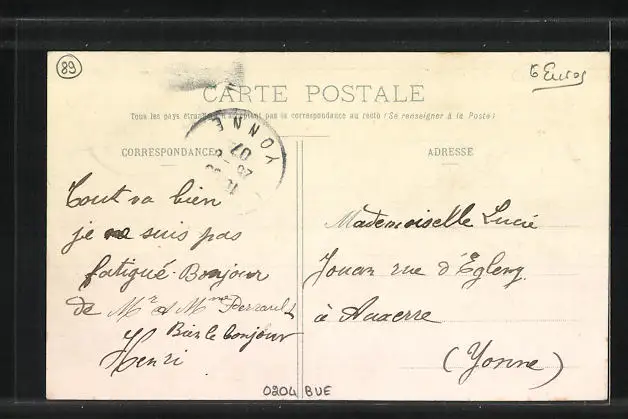 89
6 Euros
CARTE POSTALE
Tous les pays étrangers n'acceptent pas la correspondance au recto (Se renseigner à la Poste)
CORRESPONDANCE
ADRESSE
YONNE
07
Tout va bien
je ne suis pas
fatigué. Bonjour
de Mr et Mme
Bien le bonjour
Henri
Mademoiselle Lucie
Jouan rue d'Egleny
à Auxerre
(Yonne)
0204 BUE